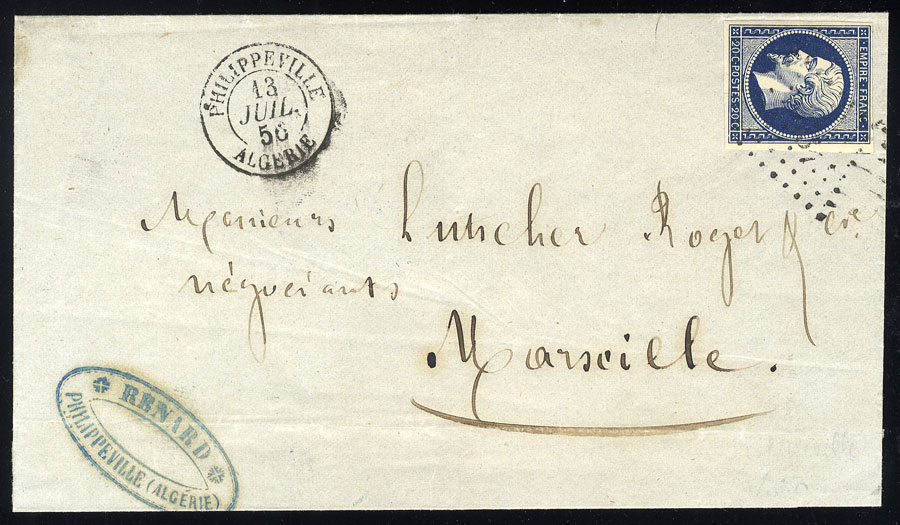 PHILIPPEVILLE
13
JUIL.
56
ALGÉRIE
EMPIRE FRANC.
20 C POSTES 20 C
Messieurs Lutscher Roger & Cie.
négociants
Marseille.
RENARD
PHILIPPEVILLE (ALGÉRIE)